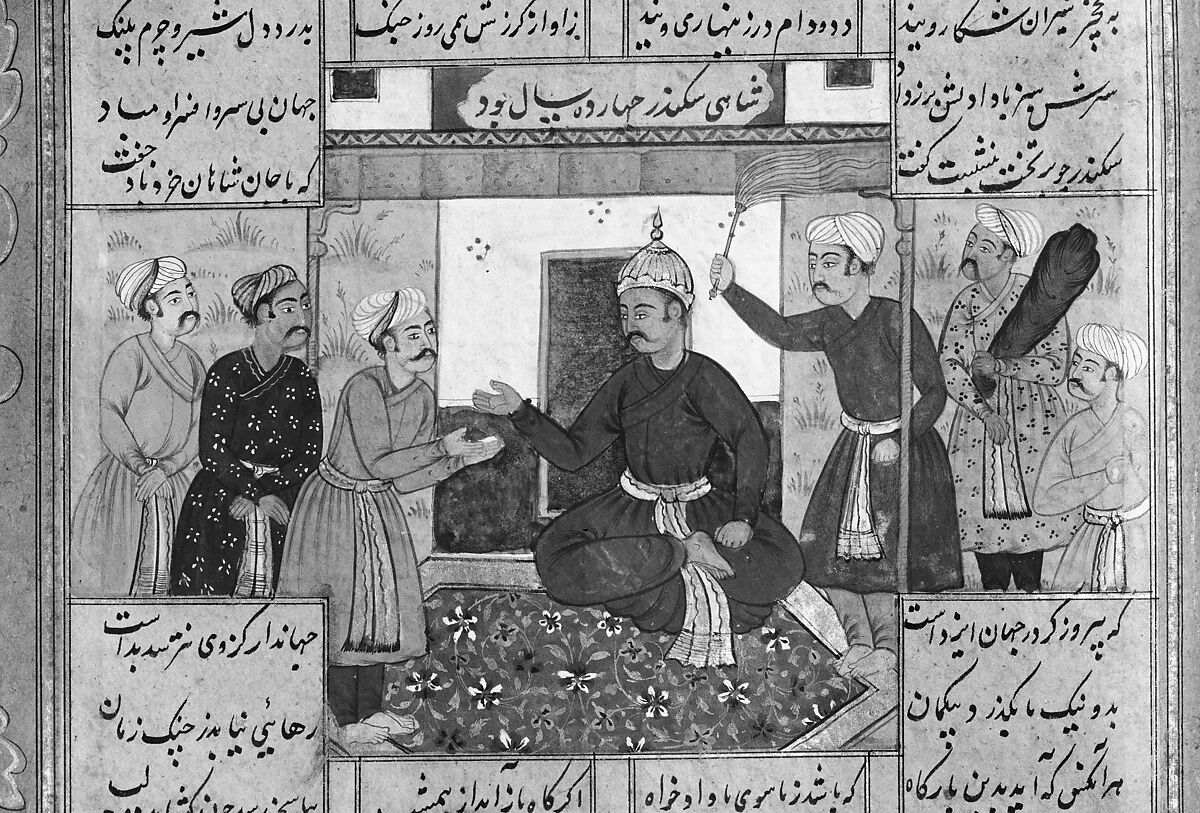 به نخچیر شیران شکار ویند دد و دام در زینهاری ویند ز آواز گرزش همی روز جنگ بدرد دل شیر و چرم پلنگ
شاهی سکندر چهارده سال بود
سرش سبز باد و دلش پر ز داد جهان بی سر و افسر او مباد
سکندر چو بر تخت بنشست گفت که با جان شاهان خرد باد جفت
که پیروزگر در جهان ایزد است جهاندار کز وی نترسد بد است
بد و نیک ما بگذرد بیگمان رهائی نیابد ز چنگ زمان
هر آنکس که آید بدین بارگاه که باشد ز ما سوی ما دادخواه اگر گاه بار آید از نیمشب بپاسخ رسد چون گشاید دو لب